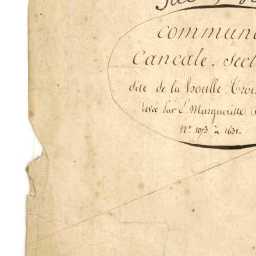 commun
Cancale. Sect
dite de la houlle Troi
levée par L. Margueritte
Nos. 1073 à 1631.